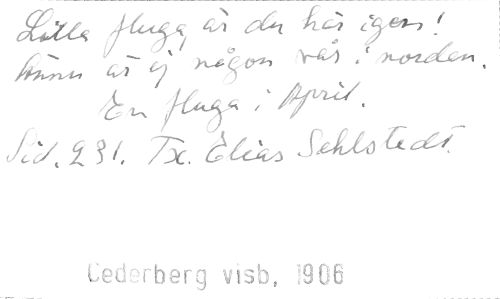 Lilla fluga, är du här igen!
ännu är ej någon vår i norden.
En fluga i April.
Sid. 231. Tx. Elias Sehlstedt.
Cederberg visb, 1906